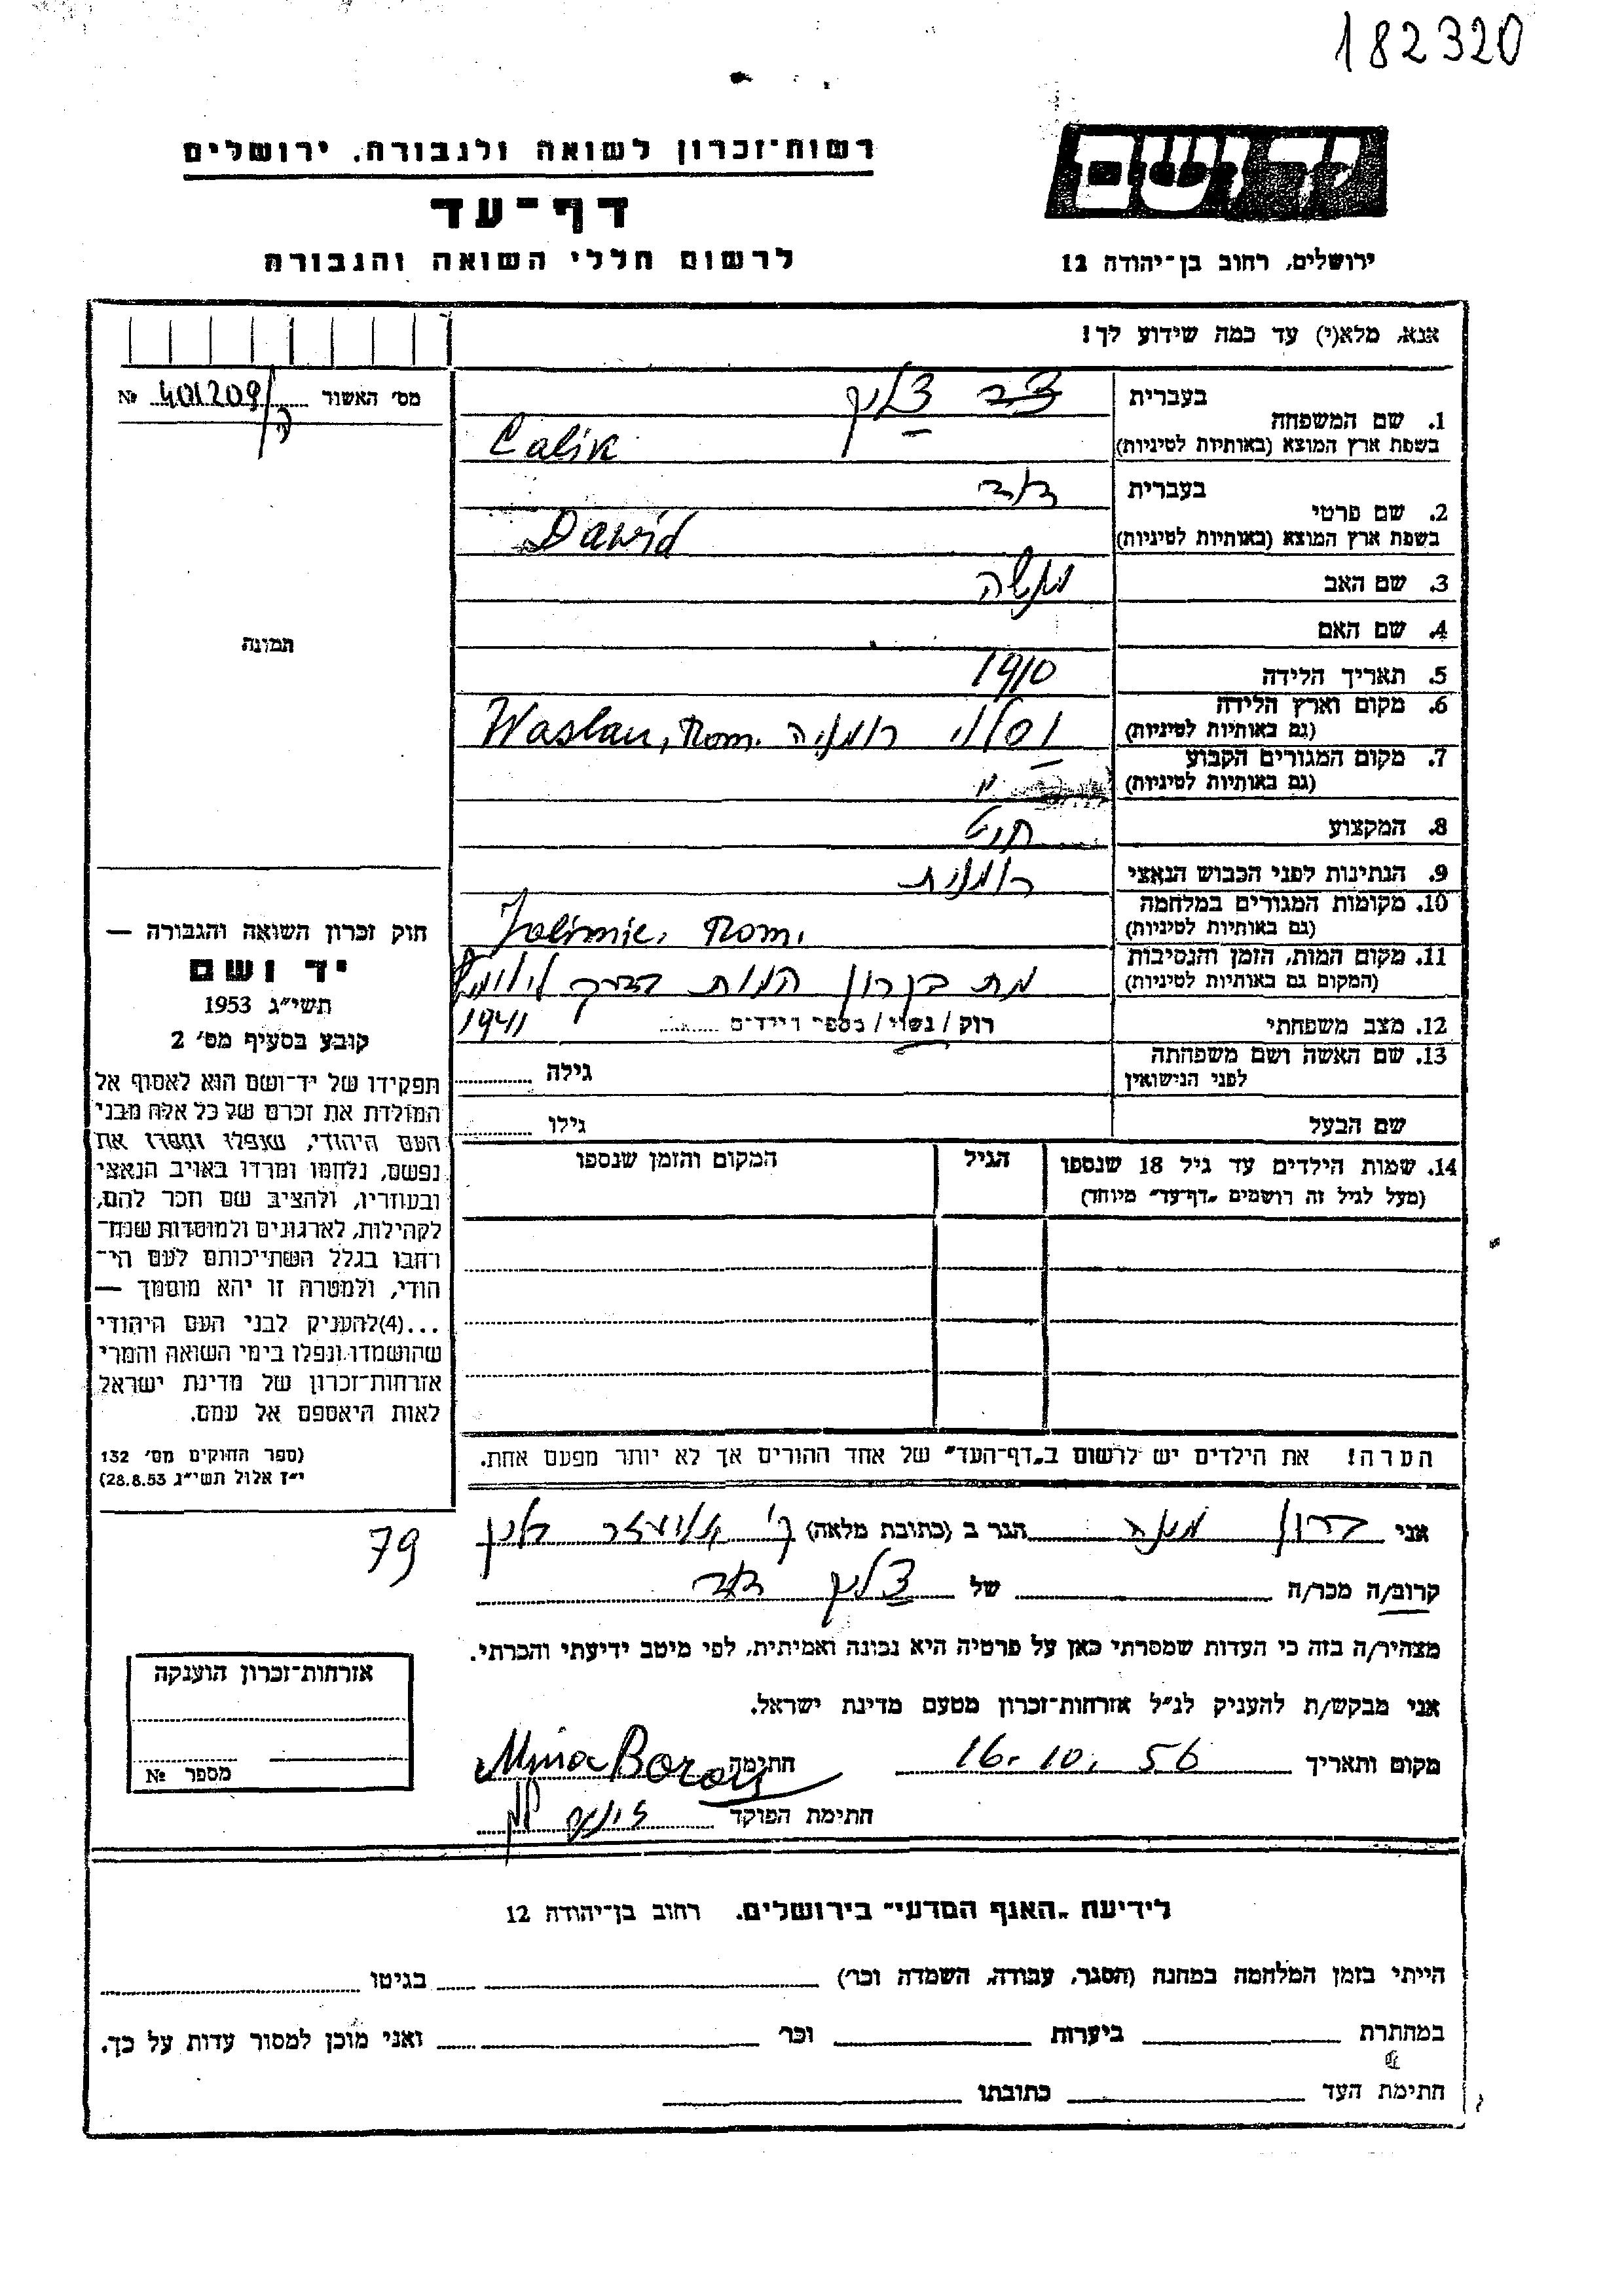 182320
רשות־זכרון לשואה ולגבורה. ירושלים
יד ושם
דף־עד
לרשום חללי השואה והגבורה
ירושלים, רחוב בן־יהודה 12
אנא, מלא(י) עד כמה שידוע לך!
מס׳ האשור 401209/ №
1. שם המשפחה בעברית צליק
בשפת ארץ המוצא (באותיות לטיניות) Calik
2. שם פרטי בעברית דוד
בשפת ארץ המוצא (באותיות לטיניות) Dawid
3. שם האב משה
4. שם האם
5. תאריך הלידה 1910
6. מקום וארץ הלידה וסלוי רומניה Waslau, Rom.
(גם באותיות לטיניות)
7. מקום המגורים הקבוע "
(גם באותיות לטיניות)
8. המקצוע
9. הנתינות לפני הכבוש הנאצי רומנית
10. מקומות המגורים במלחמה Rom.
(גם באותיות לטיניות)
11. מקום המות, הזמן והנסיבות מת בקרון המות בדרך
(המקום גם באותיות לטיניות)
1941
12. מצב משפחתי רוק / נשוי / מספר הילדים
13. שם האשה ושם משפחתה גילה
לפני הנישואין
שם הבעל גילו
14. שמות הילדים עד גיל 18 שנספו הגיל המקום והזמן שנספו
(מעל לגיל זה רושמים „דף־עד” מיוחד)
הערה! את הילדים יש לרשום ב„דף־העד” של אחד ההורים אך לא יותר מפעם אחת.
תמונה
חוק זכרון השואה והגבורה —
יד ושם
תשי״ג 1953
קובע בסעיף מס׳ 2
תפקידו של יד־ושם הוא לאסוף אל
המולדת את זכרם של כל אלה מבני
העם היהודי, שנפלו ומסרו את
נפשם, נלחמו ומרדו באויב הנאצי
ובעוזריו, ולהציב שם וזכר להם,
לקהילות, לארגונים ולמוסדות שנח־
רחבו בגלל השתייכותם לעם הי־
הודי, ולמטרה זו יהא מוסמך —
...(4)להעניק לבני העם היהודי
שהושמדו ונפלו בימי השואה והמרי
אזרחות־זכרון של מדינת ישראל
לאות היאספם אל עמם.
(ספר החוקים מס׳ 132
י״ז אלול תשי״ג 28.8.53)
79
אני ברון מינה הגר ב (כתובת מלאה) ק׳
קרוב/ה מכר/ה של צליק דוד
מצהיר/ה בזה כי העדות שמסרתי כאן על פרטיה היא נכונה ואמיתית, לפי מיטב ידיעתי והכרתי.
אני מבקש/ת להעניק לנ״ל אזרחות־זכרון מטעם מדינת ישראל.
מקום ותאריך 16. 10. 56 חתימה Mina Boron
חתימת הפוקד
אזרחות־זכרון הוענקה
מספר №
לידיעת „האגף המדעי” בירושלים. רחוב בן־יהודה 12
הייתי בזמן המלחמה במחנה (הסגר, עבודה, השמדה וכו׳) בגיטו
במחתרת ביערות וכו׳ ואני מוכן למסור עדות על כך.
חתימת העד כתובתו